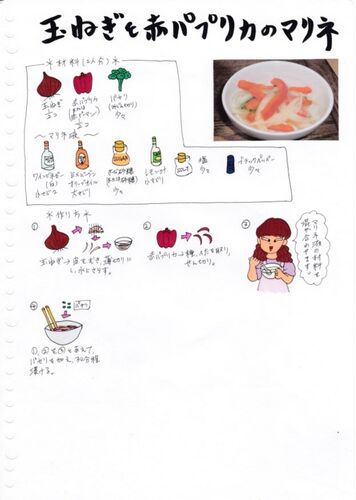 玉ねぎと赤パプリカのマリネ
＊材料(2人分)＊
玉ねぎ
½コ
赤パプリカ
(または
赤ピーマン)
½コ
パセリ
(みじん切り)
少々
〜マリネ液〜
ワインビネガー
(白)
小さじ2
エキストラバージン
オリーブオイル
大さじ1
SUGAR
きび砂糖
(または砂糖)
少々
レモン汁
小さじ1
SALT
塩
少々
ブラックペッパー
少々
＊作り方＊
①
玉ねぎ→皮をむき、薄切りに
し、水にさらす。
②
赤パプリカ→種、へたを取り、
せん切り。
③
マリネ液の材料を
混ぜ合わせます。
④
パセリ
①、②を③とあえて、
パセリを加え、30分程
漬ける。